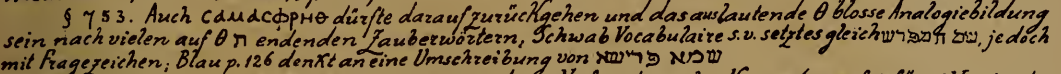 § 753. Auch ϹΑΜΑϹΦΡΗΘ dürfte darauf zurückgehen und das auslautende Θ blosse Analogiebildung
sein nach vielen auf Θ ח endenden Zauberwörtern, Schwab Vocabulaire s.v. setzt es gleich שם המפרש, jedoch
mit Fragezeichen; Blau p. 126 denkt an eine Umschreibung von שמא פרישא